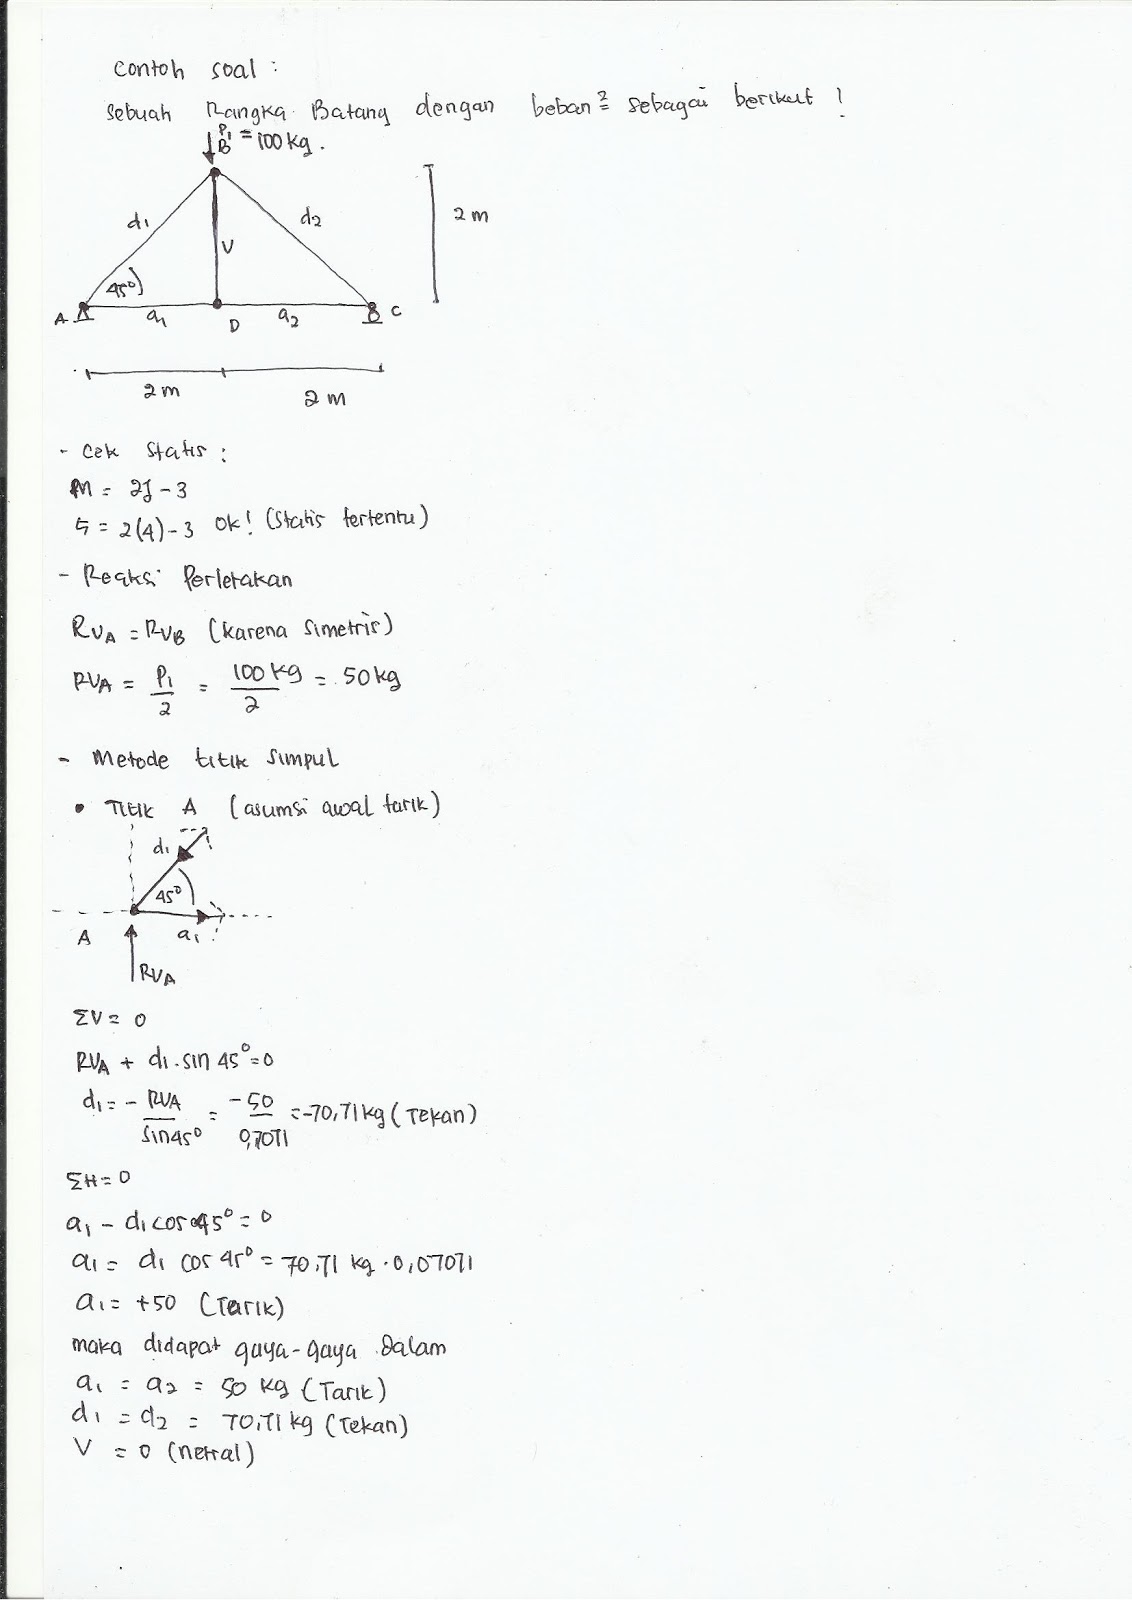 Contoh soal :
sebuah Rangka Batang dengan beban² sebagai berikut !
P1 = 100 kg .
B
d1
d2
2 m
V
45°
A
a1
D
a2
C
2 m
2 m
- Cek Statis :
M = 2J - 3
5 = 2(4) - 3 Ok! (Statis tertentu)
- Reaksi Perletakan
RVA = RVB (karena simetris)
RVA = P1/2 = 100 kg/2 = 50 kg
- Metode titik simpul
• Titik A (asumsi awal tarik)
d1
45°
A
a1
RVA
ΣV = 0
RVA + d1 . sin 45° = 0
d1 = - RVA/sin 45° = -50/0,7071 = -70,71 kg (Tekan)
ΣH = 0
a1 - d1 cos 45° = 0
a1 = d1 cos 45° = 70,71 kg . 0,07071
a1 = +50 (Tarik)
maka didapat gaya-gaya Dalam
a1 = a2 = 50 kg (Tarik)
d1 = d2 = 70,71 kg (Tekan)
V = 0 (netral)